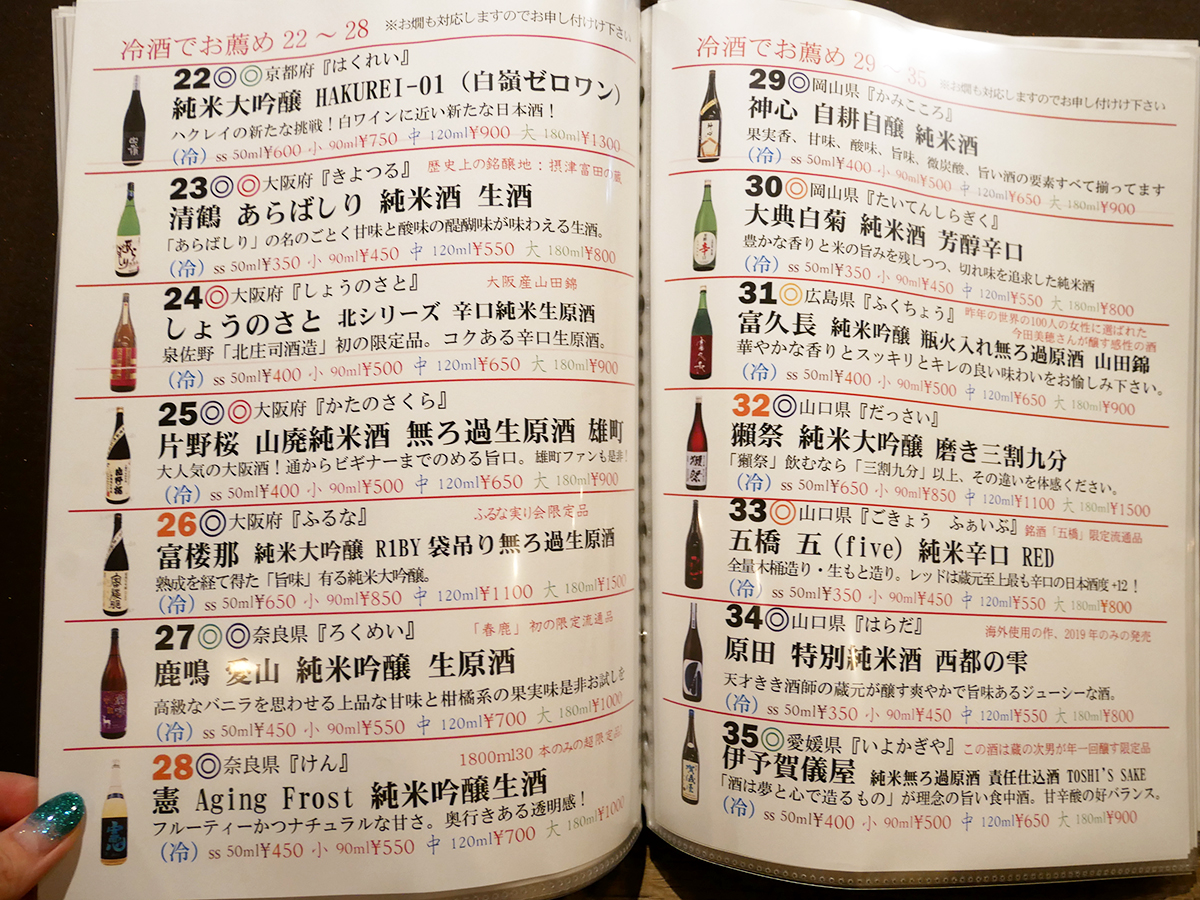 冷酒でお薦め 22 ～ 28 ※お燗も対応しますのでお申し付け下さい
22◎◎京都府『はくれい』
純米大吟醸 HAKUREI-01 (白嶺ゼロワン)
ハクレイの新たな挑戦！白ワインに近い新たな日本酒！
(冷) ss 50ml¥600 小 90ml¥750 中 120ml¥900 大 180ml¥1300
23◎◎大阪府『きよつる』 歴史上の銘醸地：摂津富田の蔵
清鶴 あらばしり 純米酒 生酒
「あらばしり」の名のごとく甘味と酸味の醍醐味が味わえる生酒。
(冷) ss 50ml¥350 小 90ml¥450 中 120ml¥550 大 180ml¥800
24◎大阪府『しょうのさと』 大阪産山田錦
しょうのさと 北シリーズ 辛口純米生原酒
泉佐野「北庄司酒造」初の限定品。コクある辛口生原酒。
(冷) ss 50ml¥400 小 90ml¥500 中 120ml¥650 大 180ml¥900
25◎◎大阪府『かたのさくら』
片野桜 山廃純米酒 無ろ過生原酒 雄町
大人気の大阪酒！通からビギナーまでのめる旨口。雄町ファンも是非！
(冷) ss 50ml¥400 小 90ml¥500 中 120ml¥650 大 180ml¥900
26◎大阪府『ふるな』 ふるな実り会限定品
富楼那 純米大吟醸 R1BY 袋吊り無ろ過生原酒
熟成を経て得た「旨味」有る純米大吟醸。
(冷) ss 50ml¥650 小 90ml¥850 中 120ml¥1100 大 180ml¥1500
27◎◎奈良県『ろくめい』 「春鹿」初の限定流通品
鹿鳴 愛山 純米吟醸 生原酒
高級なバニラを思わせる上品な甘味と柑橘系の果実味是非お試しを
(冷) ss 50ml¥450 小 90ml¥550 中 120ml¥700 大 180ml¥1000
28◎奈良県『けん』 1800ml30 本のみの超限定品
憲 Aging Frost 純米吟醸生酒
フルーティーかつナチュラルな甘さ。奥行きある透明感！
(冷) ss 50ml¥450 小 90ml¥550 中 120ml¥700 大 180ml¥1000
冷酒でお薦め 29 ～ 35 ※お燗も対応しますのでお申し付け下さい
29◎岡山県『かみこころ』
神心 自耕自醸 純米酒
果実香、甘味、酸味、旨味、微炭酸、旨い酒の要素すべて揃ってます
(冷) ss 50ml¥400 小 90ml¥500 中 120ml¥650 大 180ml¥900
30◎岡山県『たいてんしらぎく』
大典白菊 純米酒 芳醇辛口
豊かな香りと米の旨みを残しつつ、切れ味を追求した純米酒
(冷) ss 50ml¥350 小 90ml¥450 中 120ml¥550 大 180ml¥800
31◎広島県『ふくちょう』 昨年の世界の100人の女性に選ばれた
今田美穂さんが醸す感性の酒
富久長 純米吟醸 瓶火入れ無ろ過原酒 山田錦
華やかな香りとスッキリとキレの良い味わいをお愉しみ下さい。
(冷) ss 50ml¥400 小 90ml¥500 中 120ml¥650 大 180ml¥900
32◎山口県『だっさい』
獺祭 純米大吟醸 磨き三割九分
「獺祭」飲むなら「三割九分」以上、その違いを体感ください。
(冷) ss 50ml¥650 小 90ml¥850 中 120ml¥1100 大 180ml¥1500
33◎山口県『ごきょう ふぁいぶ』 銘酒「五橋」限定流通品
五橋 五 (five) 純米辛口 RED
全量木桶造り・生もと造り。レッドは蔵元至上最も辛口の日本酒度 +12！
(冷) ss 50ml¥350 小 90ml¥450 中 120ml¥550 大 180ml¥800
34◎山口県『はらだ』 海外使用の作、2019 年のみの発売
原田 特別純米酒 西都の雫
天才きき酒師の蔵元が醸す爽やかで旨味あるジューシーな酒。
(冷) ss 50ml¥350 小 90ml¥450 中 120ml¥550 大 180ml¥800
35◎愛媛県『いよかぎや』 この酒は蔵の次男が年一回醸す限定品
伊予賀儀屋 純米無ろ過原酒 責任仕込酒 TOSHI'S SAKE
「酒は夢と心で造るもの」が理念の旨い食中酒。甘辛酸の好バランス。
(冷) ss 50ml¥400 小 90ml¥500 中 120ml¥650 大 180ml¥900